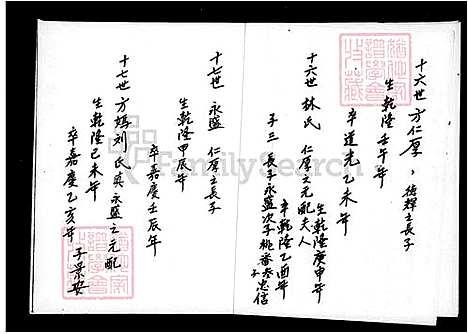 十六世 方仁厚，德輝之長子
生乾隆壬午年
卒道光乙未年
十六世 林氏 仁厚之元配夫人
生乾隆庚申年
卒乾隆乙酉年
子三 長子永盛次子桃番叁子忠信
十七世 永盛 仁厚之長子
生乾隆甲辰年
卒嘉慶壬辰年
十七世 方媽刘氏 永盛之元配
生乾隆己未年
卒嘉慶乙亥年 子景安
FamilySearch